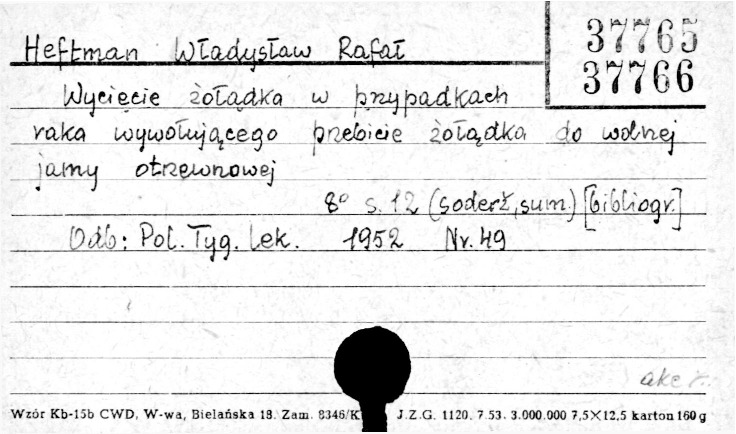 Heftman Władysław Rafał
37765
37766
Wycięcie żołądka w przypadkach
raka wywołującego przebicie żołądka do wolnej
jamy otrzewnowej
8° s. 12 (soderž, sum.) [bibliogr.]
Odb: Pol. Tyg. Lek. 1952 Nr. 49
Wzór Kb-15b CWD, W-wa, Bielańska 18. Zam. 8346/K J.Z.G. 1120. 7.53. 3.000.000 7,5×12,5 karton 160 g